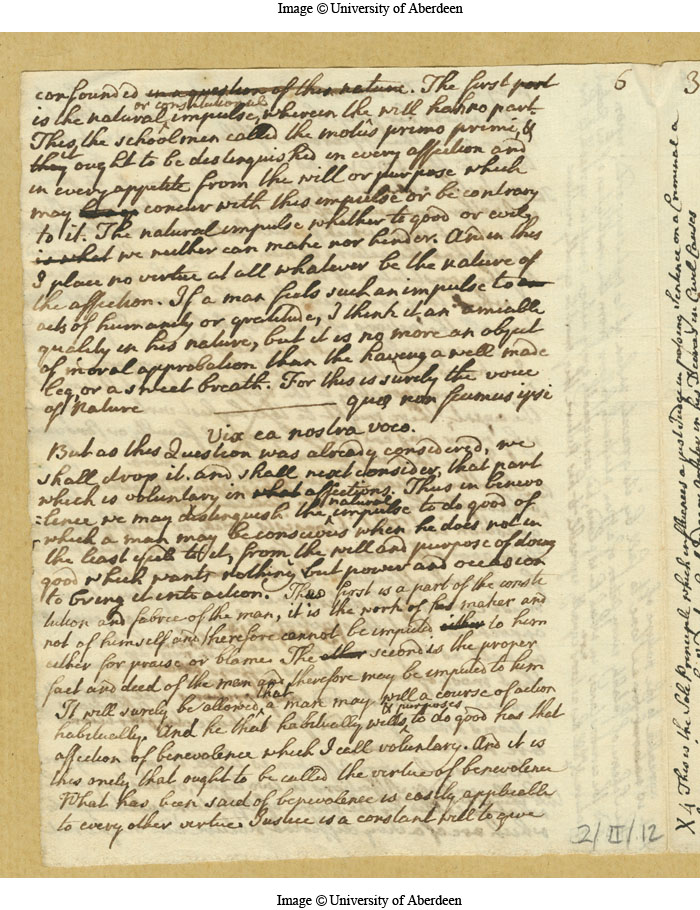 Image © University of Aberdeen
6
3
confounded in a question of this nature. The first part
is the natural or constitutional impulse, wherein the will has no part.
This, the schoolmen called the motûs primo primi, &
they ought to be distinguished in every affection and
in every appetite from the will or purpose which
may concur with this impulse or be contrary
to it. The natural impulse whether to good or evil,
is what we neither can make nor hinder. And in this
I place no virtue at all whatever be the nature of
the affection. If a man feels such an impulse to
acts of humanity or gratitude, I think it an amiable
quality in his nature, but it is no more an object
of moral approbation than the having a well made
leg, or a sweet breath. For this is surely the voice
of Nature quæ non fecimus ipsi
Vix ea nostra voco.
But as this Question was already considered, we
shall drop it. and shall next consider, that part
which is voluntary in what affections. Thus in benevo
lence we may distinguish the natural impulse to do good of
which a man may be conscious when he does not in
the least yield to it, from the will and purpose of doing
good which wants nothing but power and occasion
to bring it into action. This first is a part of the consti
tution and fabric of the man, it is the work of his maker and
not of himself and therefore cannot be imputed either to him
either for praise or blame. The other second is the proper
fact and deed of the man and therefore may be imputed to him
It will surely be allowed, that a man may will a course of action
habitually. And he that habitually wills, & purposes to do good has that
affection of benevolence which I call voluntary. And it is
this onely that ought to be called the virtue of benevolence
What has been said of benevolence is easily applicable
to every other virtue. Justice is a constant will to give
2/II/12
X 4 This is the Sole Principle which influences a just Judge in passing Sentence on a Criminal a
in his Decrees in Civil Causes
Image © University of Aberdeen